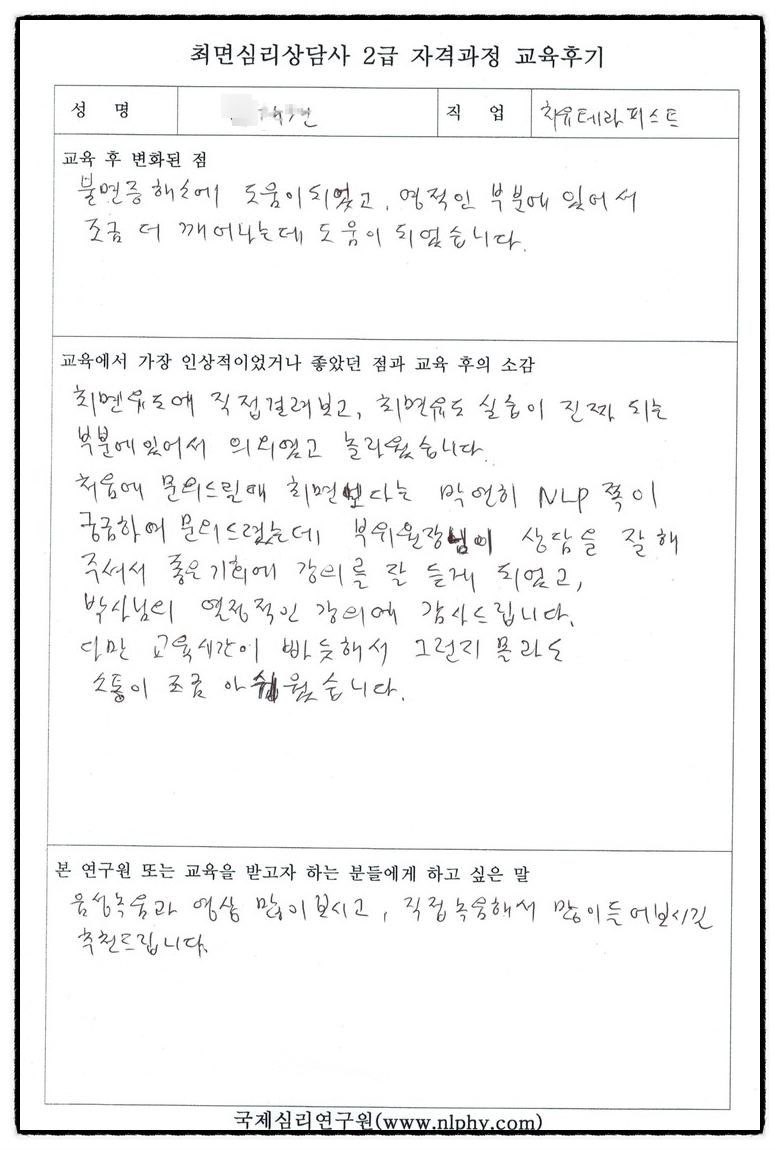 최면심리상담사 2급 자격과정 교육후기
성 명
직 업 치유테라피스트
교육 후 변화된 점
불면증 해소에 도움이 되었고, 영적인 부분에 있어서
조금 더 깨어나는데 도움이 되었습니다.
교육에서 가장 인상적이었거나 좋았던 점과 교육 후의 소감
최면유도에 직접걸려보고, 최면유도 실습이 진짜 되는
부분에 있어서 의외였고 놀라웠습니다.
처음에 문의드릴때 최면보다는 막연히 NLP 쪽이
궁금하여 문의드렸는데 부위원장님이 상담을 잘해
주셔서 좋은기회에 강의를 잘 듣게 되었고,
박사님의 열정적인 강의에 감사드립니다.
다만 교육시간이 빠듯해서 그런지 몰라도
소통이 조금 아쉬웠습니다.
본 연구원 또는 교육을 받고자 하는 분들에게 하고 싶은 말
음성녹음과 영상 많이보시고, 직접녹음해서 많이들어보시길
추천드립니다.
국제심리연구원(www.nlphy.com)